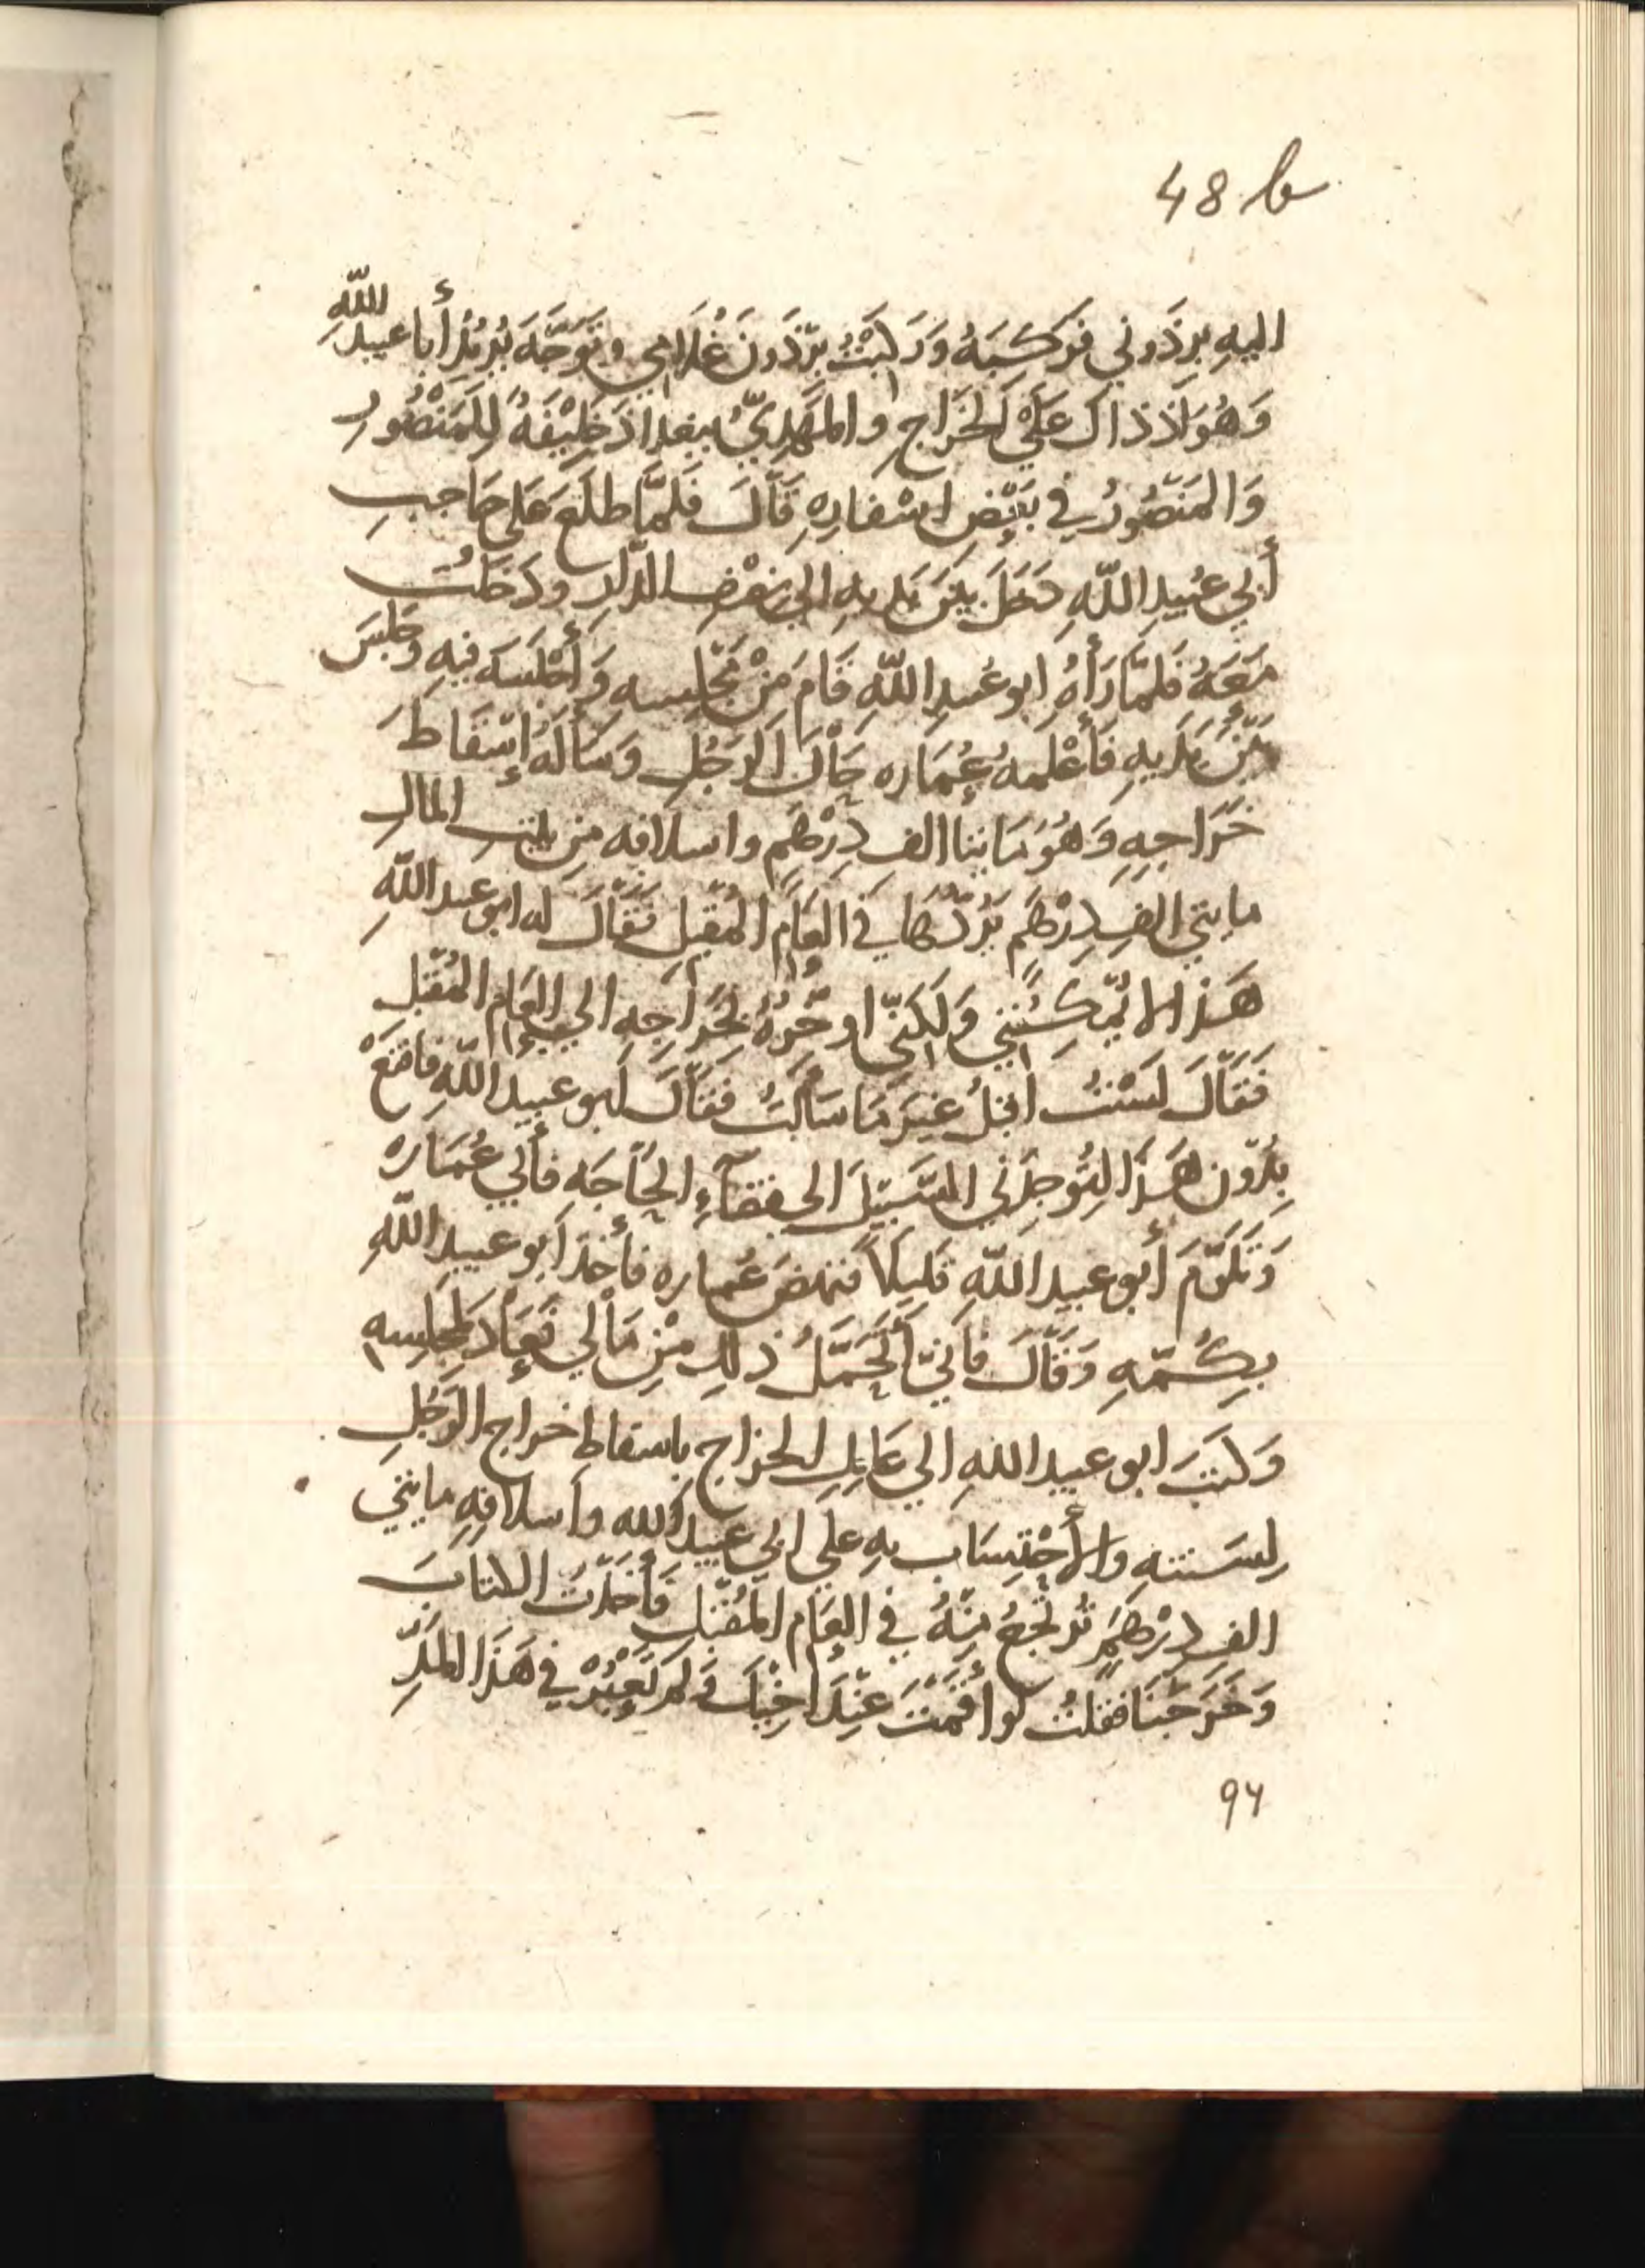 48 b
اليهِ بِرذَوني فَرَكِبَهُ وَرَكِبْتُ بِرْذَونَ غُلَامِي وتَوَجَّهَ يُريدُ أَبا عبيدِ اللّٰهِ
وَهُوَ اذ ذاك عَلَى الْخَرَاجِ والمَهَدِيُّ ببغداذَ خَلِيْفَةً لِلمَنْصُورِ
وَالمَنصُورُ في بَعْضِ اسْفارِهِ قَالَ فَلَمَّا طلَعَ عَلى حَاجِبِ
أَبي عُبَيدِ اللّهِ دَخَلَ بيْنَ يَديهِ الي بَعْضِ الدَّارِ ودَخَلْتُ
مَعَهُ فَلَمَّا رَأَهُ ابو عُبيدِ اللّهِ قَامَ مِنْ مَجْلِسه وَأَجْلَسَه فيه وَجَلسَ
بَيْنَ يَدَيهِ فَأَعْلَمهُ عُمَاره حَالَ الرَجُلِ وَسَأَلَهُ إسْقَاطَ
خَرَاجِهِ وَهُوَ مَايتا الفِ دِرْهَمٍ واسلافه مِن بَيْتِ المَالِ
مايتي الفِ دِرْهَمٍ يَرُدّهَا في العَامِ المُقبِلِ فَقَالَ له ابو عبد اللّهِ
هَذا لا يُمْكِنُنِي وَلَكِنّي اوخّرُهُ بِخَرَاجِه الي العَامِ المُقْبلِ
فَقَالَ لَسْتُ اقبلُ غَيرَ مَا سَأَلتُ فقَالَ ابو عبيد اللّهِ فاقنَعْ
بِدُون هَذَا لِتُوجِدَني السَّبِيْلَ الى قضَآءِ الحَاجَه فأَبي عُمَارَه
وَتَلَوَّمَ أَبو عبيد اللّهِ قَلِيلاً فنهَضَ عُماره فأَخذَ أبو عبيدِ اللّهِ
بِكُمّهِ وَقَالَ فاني أَتَحَمَّلُ ذلِكَ مِنْ مَالي فَعَادَ لِمَجلِسه
وَكَتَبَ ابو عبيد اللهِ الي عَامِلِ الخراج باسقاط خراج الرَجُلِ
لِسَنتهِ والأحْتِسَاب بهِ علي ابي عبيد الله واسلافِهِ مايتي
الفِ دِرْهَمٍ تُرتَجعُ مِنْهُ في العَامِ المُقْبل فَأَخَذْتُ الكتابَ
وَخَرَجْنَا فقلتُ لو أَقمْتَ عِنْدَ اخِيْكَ وَلم تَعْبُرْ في هَذَا المَدِّ
94